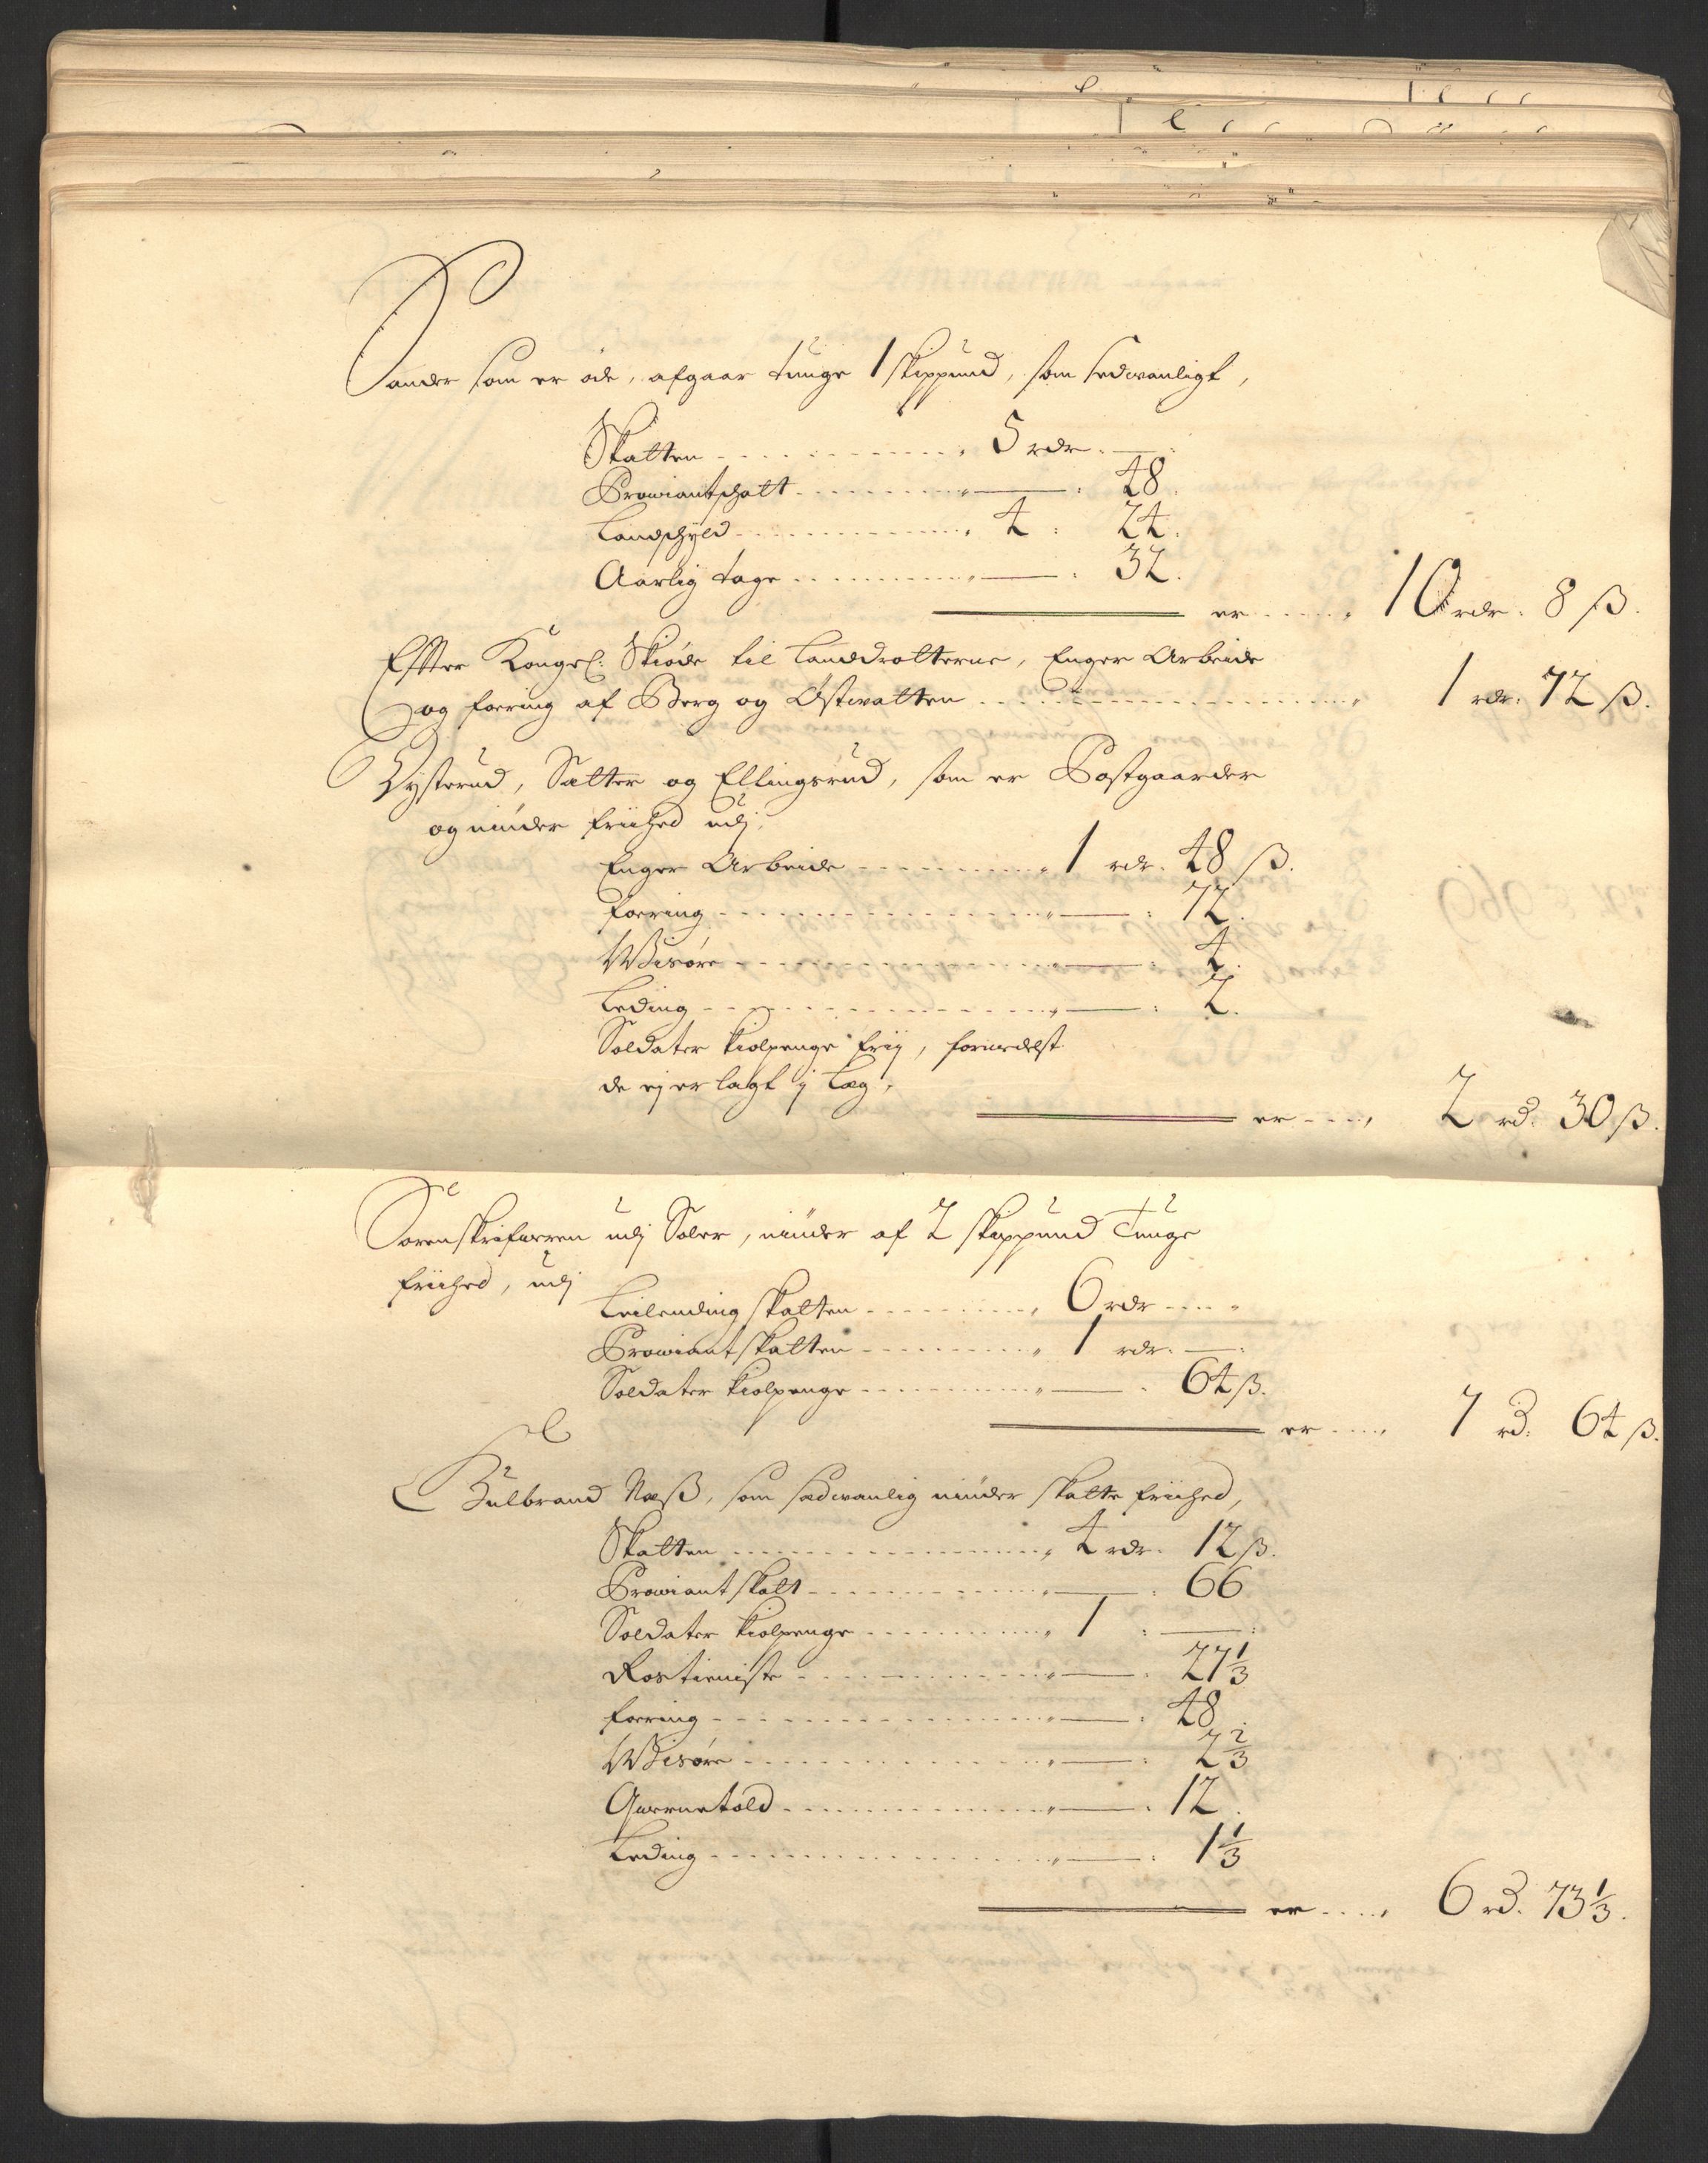 Sander som er øde, afgaar tunge 1 skippund, som sedvanligt,
Skatten - - - 5 rdr. —
Proviantschatt - - - — : 48.
Landschyld - - - 4 : 24.
Aarlig tage - - - — : 32.
er - - - 10 rdr. 8 ß.
Efter Kongel: Skiøde til Landdrotterne, Enger Arbeide
og foering af Berg og Østvatten - - - 1 rdr. 72 ß.
Systerud, Sætter og Ellingsrud, som er Postgaarder
og niuder friihed udj,
Enger Arbeide - - - 1 rdr. 48 ß.
foering - - - — : 72.
Wisøre - - - — : 4.
Leding - - - — : 2.
Soldater kiolpenge frij, formedelst
de ej er lagt j Læg,
er - - - 2 rd. 30 ß.
Sorenskrifueren udj Soler, niuder af 2 skippund Tunge
friihed, udj
Leilending skatten - - - 6 rdr - - -
Proviantskatten - - - 1 rdr. —
Soldater kiolpenge - - - — . 64 ß.
er - - - 7 rd. 64 ß.
Gulbrand Næß, som sædvanlig niuder skatte friihed,
Skatten - - - 4 rdr. 12 ß.
Proviantskatt - - - — : 66
Soldater kiolpenge - - - 1 : —
Rostieniste - - - — : 27 1/3
foering - - - — : 48.
Wisøre - - - — : 2 2/3
Quernetold - - - — : 12.
Leding - - - — : 1 1/3
er - - - 6 rd. 73 1/3.